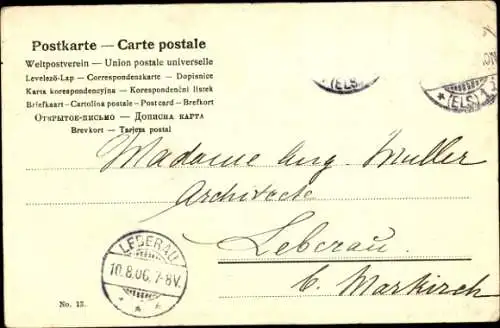 Postkarte — Carte postale
Weltpostverein — Union postale universelle
Levelező-Lap — Correspondenzkarte — Dopisnice
Karta korespondencyjna — Korespondenční listek
Briefkaart - Cartolina postale - Post card - Brefkort
ОТКРЫТОЕ-ПИСЬМО — ДОПИСНА КАРТА
Brevkort — Tarjeta postal
(ELS.)
(ELS.)
Madame Aug. Muller
Architecte
Leberau
b. Markirch
LEBERAU
10.8.06. 7-8V.
No. 13.